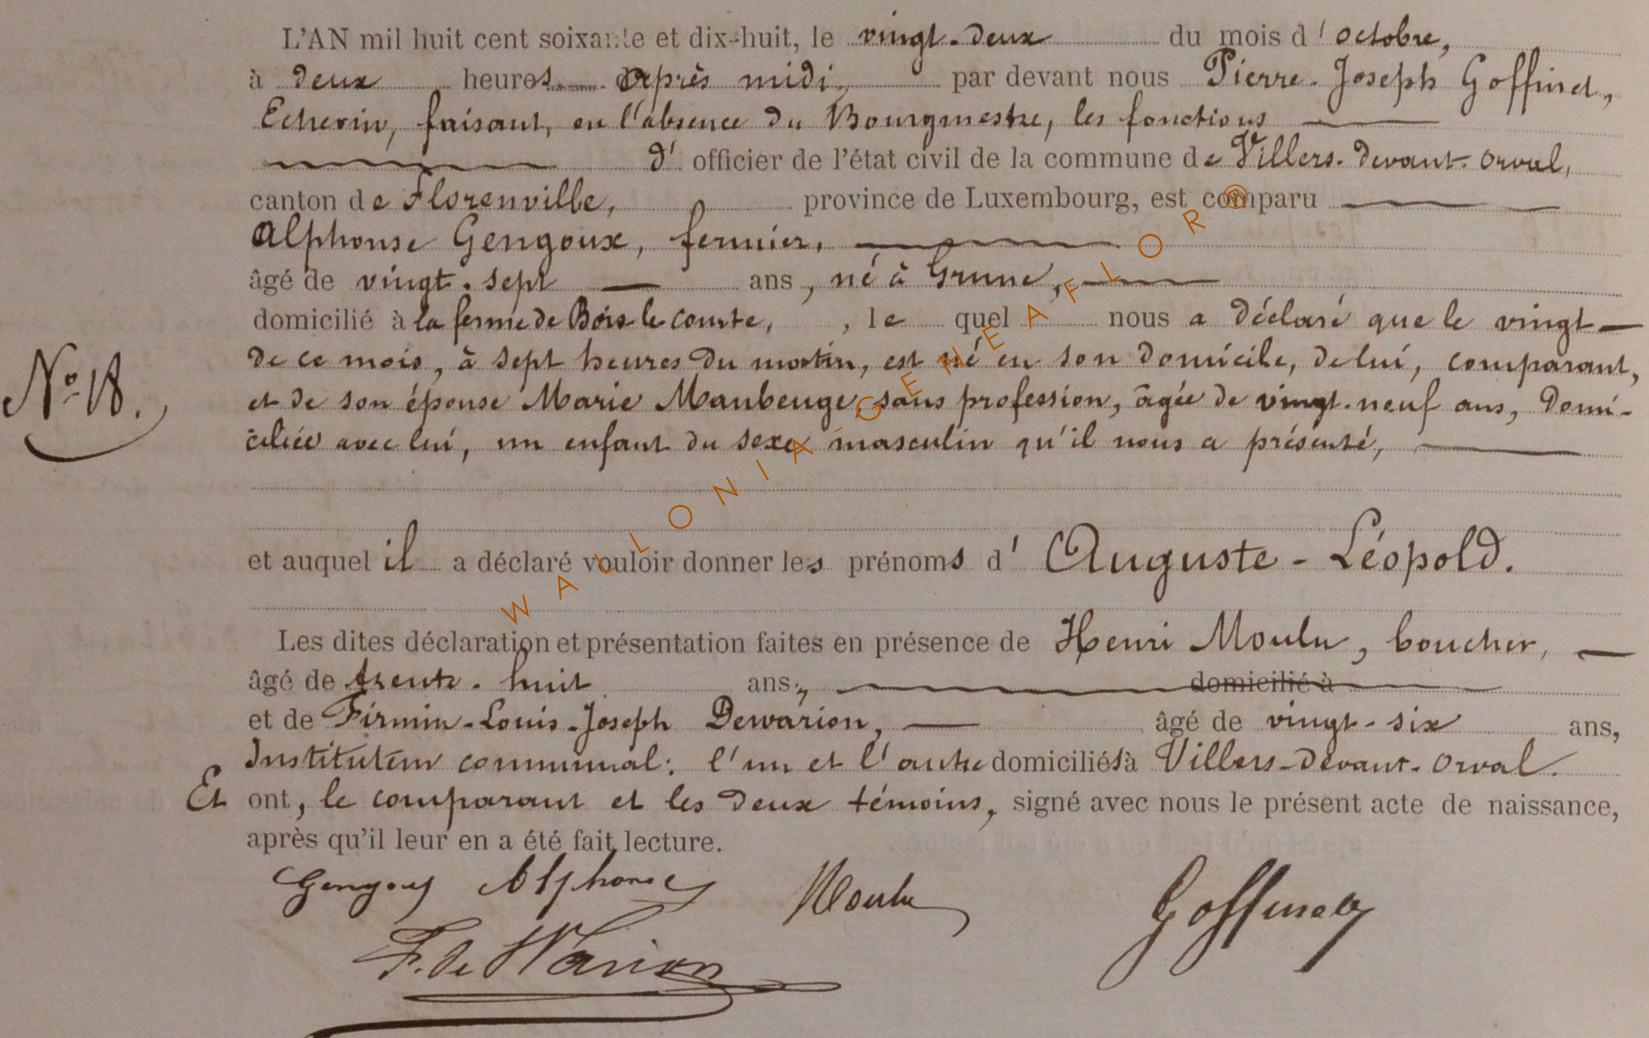 L'AN mil huit cent soixante et dix-huit, le vingt-deux du mois d'octobre,
à deux heures après midi, par devant nous Pierre-Joseph Goffinet,
Echevin, faisant, en l'absence du Bourgmestre, les fonctions
d'officier de l'état civil de la commune de Villers-devant-orval,
canton de Florenville, province de Luxembourg, est comparu
Alphonse Gengoux, fermier,
âgé de vingt-sept ans, né à Grune,
domicilié à la ferme de Bois le comte, , le quel nous a déclaré que le vingt
N° 18. de ce mois, à sept heures du matin, est né en son domicile, de lui, comparant,
et de son épouse Marie Maubeuge, sans profession, âgée de vingt-neuf ans, domi-
ciliée avec lui, un enfant du sexe masculin qu'il nous a présenté,
et auquel il a déclaré vouloir donner les prénoms d'Auguste-Léopold.
Les dites déclaration et présentation faites en présence de Henri Moulu, boucher,
âgé de trente-huit ans, domicilié à
et de Firmin-Louis-Joseph Dewarion, âgé de vingt-six ans,
Instituteur communal: l'un et l'autre domiciliés à Villers-devant-orval.
Et ont, le comparant et les deux témoins, signé avec nous le présent acte de naissance,
après qu'il leur en a été fait lecture.
Gengoux Alphonse Moulu Goffinet
F. de Warion
WALLONIA-GENEAFLOR®